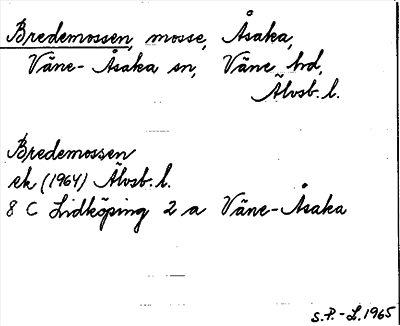 Bredemossen, mosse, Åsaka,
Väne-Åsaka sn, Väne hd,
Älvsb. l.
Bredemossen
ek (1964) Älvsb. l.
8 C Lidköping 2 a Väne-Åsaka
S.P.-L. 1965